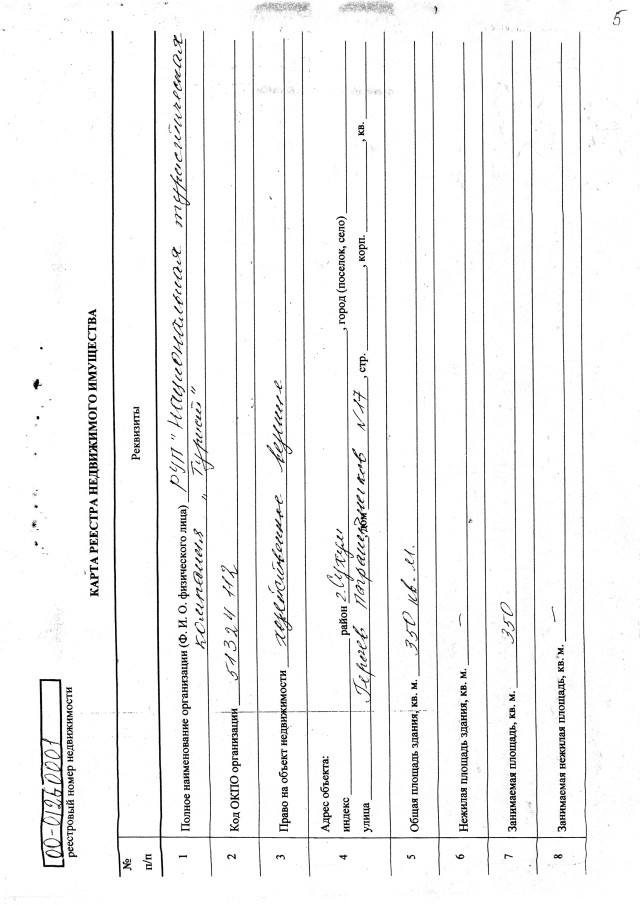 5
00-01250001
реестровый номер недвижимости
КАРТА РЕЕСТРА НЕДВИЖИМОГО ИМУЩЕСТВА
№ п/п Реквизиты
1 Полное наименование организации (Ф. И. О. физического лица) РУП "Национальная туристическая
компания "Туризм"
2 Код ОКПО организации 51324 112
3 Право на объект недвижимости хозяйственное ведение
4 Адрес объекта:
индекс район г. Сухум , город (поселок, село)
улица Героев дом N 17 , стр. , корп. , кв.
5 Общая площадь здания, кв. м. 350 кв. м.
6 Нежилая площадь здания, кв. м. –
7 Занимаемая площадь, кв. м. 350
8 Занимаемая нежилая площадь, кв. м. –